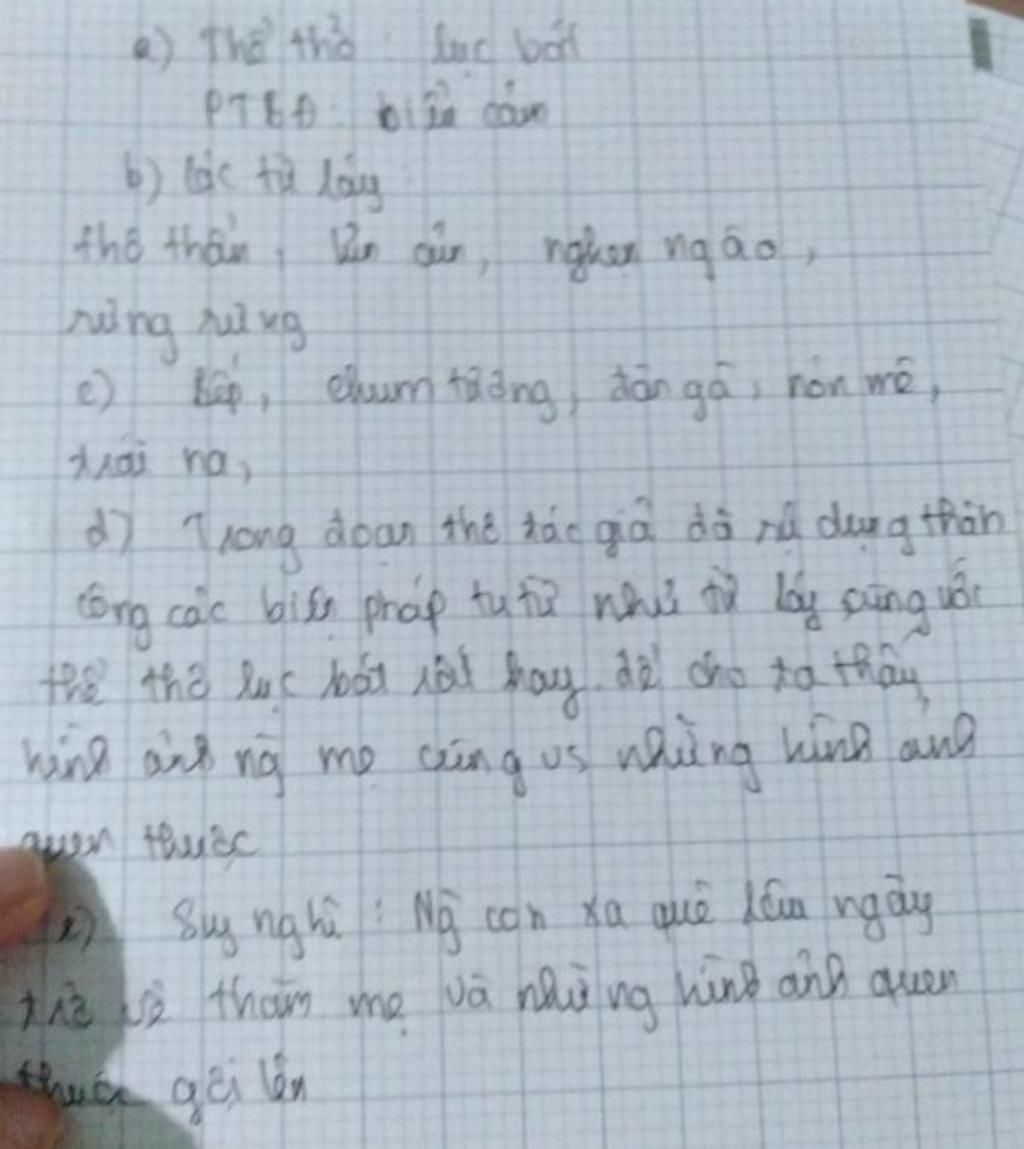 a) Thể thơ: lục bát
PTBĐ: biểu cảm
b) Các từ láy
thơ thẩn, lủn củn, nghẹn ngào,
rưng rưng
c) Bếp, chum tương, đàn gà, nón mê,
trái na,
d) Trong đoạn thơ tác giả đã sử dụng thàn
công các biện pháp tu từ như từ láy cùng với
thể thơ lục bát rất hay để cho ta thấy
hình ảnh ng̃ mẹ cùng vs những hình ảnh
quen thuộc
e) Suy nghĩ: Ng̃ con xa quê lâu ngày
trở về thăm mẹ và những hình ảnh quen
thuộc gợi lên